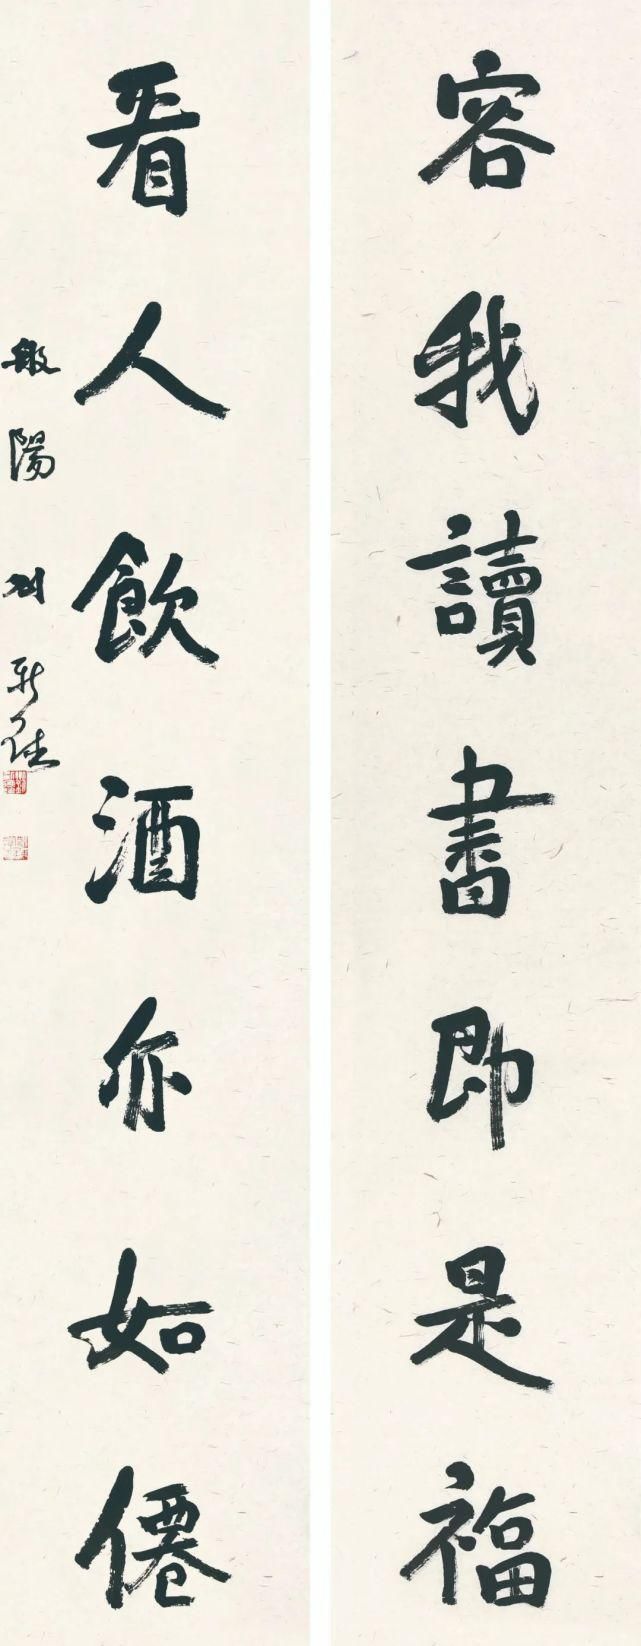 容我讀書即是福
看人飲酒亦如僊
般陽 劉新德